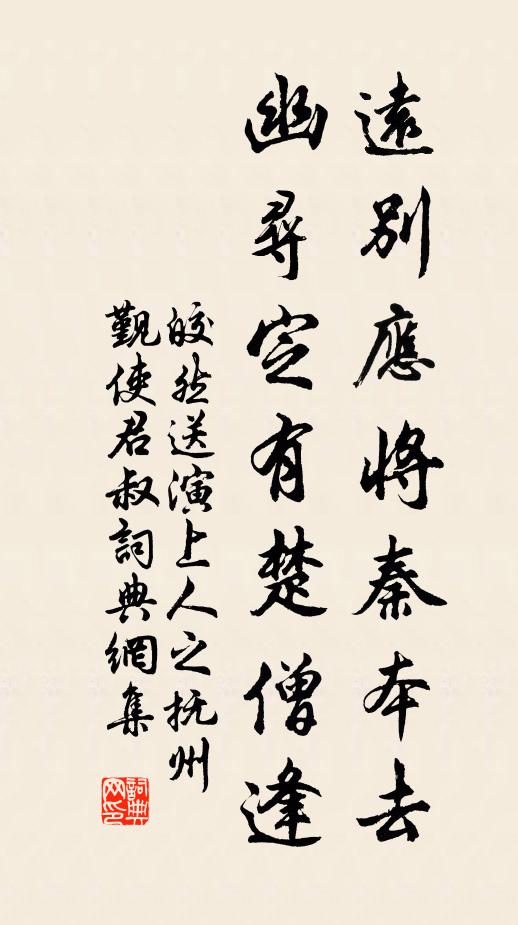 遠別應將秦本去
幽尋定有楚僧逢
皎然送演上人之抚州
觐使君叔詞典網集
詞典网印